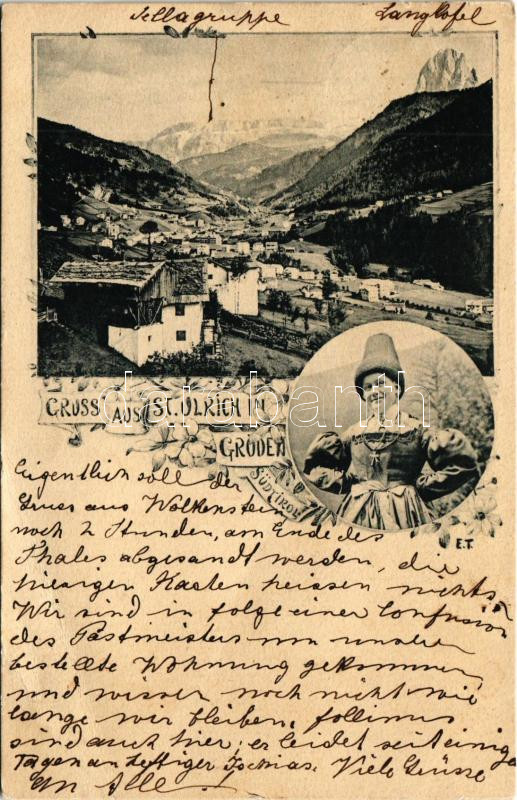 Sellagruppe Langkofel
GRUSS AUS ST. ULRICH IN
GRÖDEN
SÜDTIROL
darabanth
E.T.
Eigentlich soll der
Gruss aus Wolkenstein
noch 2 Stunden, am Ende des
Thales abgesandt werden, die
hiesigen Karten heissen nichts.
Wir sind in folge einer Confusion
des Postmeisters um unsere
bestellte Wohnung gekommen
und wissen noch nicht wie
lange wir bleiben.
sind auch hier; er leidet seit einigen
Tagen an heftiger Ischias. Viele Grüsse
an Alle!